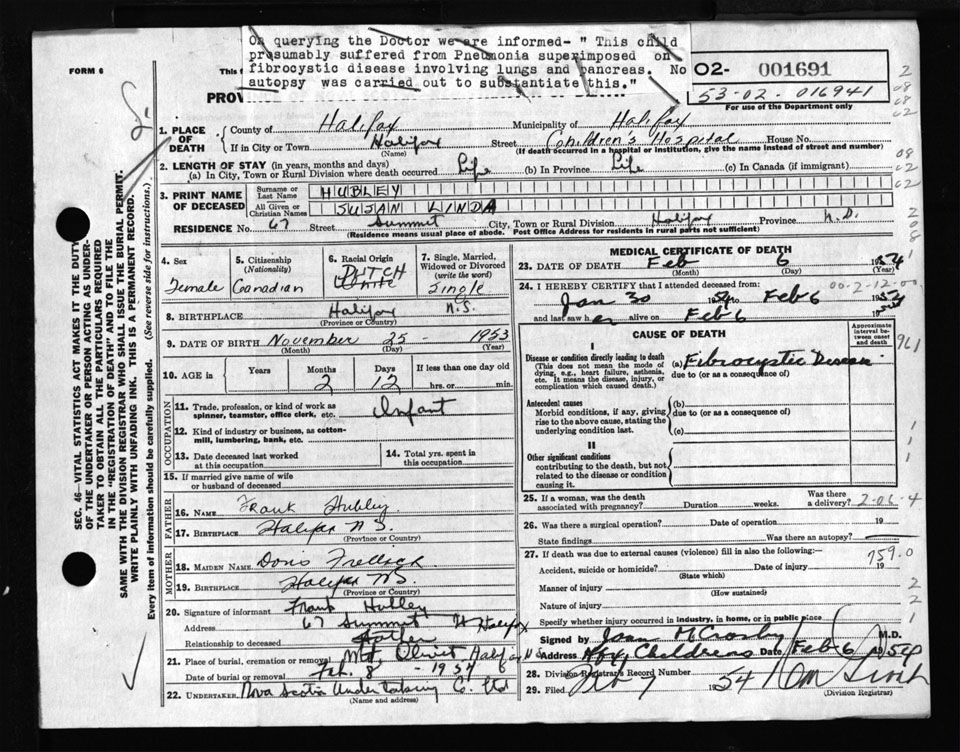 On querying the Doctor we are informed- " This child
presumably suffered from Pneumonia superimposed on
fibrocystic disease involving lungs and pancreas. No
autopsy was carried out to substantiate this."
FORM 6
This f
PROV
02- 001691
53-02-016941
For use of the Department only
1. PLACE OF DEATH
County of Halifax Municipality of Halifax
If in City or Town Halifax Street Children's Hospital House No.
(Name) (If death occurred in a hospital or institution, give the name instead of street and number)
2. LENGTH OF STAY (in years, months and days)
(a) In City, Town or Rural Division where death occurred Life (b) In Province Life (c) In Canada (if immigrant)
3. PRINT NAME OF DECEASED
Surname or Last Name HUBLEY
All Given or Christian Names SUSAN LINDA
RESIDENCE No. 67 Street Summit City, Town or Rural Division Halifax Province N.S.
(Residence means usual place of abode. Post Office Address for residents in rural parts not sufficient)
4. Sex Female
5. Citizenship (Nationality) Canadian
6. Racial Origin DUTCH White
7. Single, Married, Widowed or Divorced (write the word) Single
8. BIRTHPLACE Halifax N.S.
(Province or Country)
9. DATE OF BIRTH November 25 - 1953
(Month) (Day) (Year)
10. AGE in Years Months 2 Days 12 If less than one day hrs. or min.
OCCUPATION
11. Trade, profession, or kind of work as spinner, teamster, office clerk, etc. Infant
12. Kind of industry or business, as cotton-mill, lumbering, bank, etc.
13. Date deceased last worked at this occupation
14. Total yrs. spent in this occupation
15. If married give name of wife or husband of deceased
FATHER
16. Name Frank Hubley
17. BIRTHPLACE Halifax N.S.
(Province or Country)
MOTHER
18. MAIDEN NAME Doris
19. BIRTHPLACE Halifax N.S.
(Province or Country)
20. Signature of informant Frank Hubley
Address 67 Summit St Halifax
Relationship to deceased Father
21. Place of burial, cremation or removal Mt. Olivet Halifax N.S.
Date of burial or removal Feb. 8 - 1954
22. UNDERTAKER Nova Scotia Undertaking Co. Ltd
(Name and address)
MEDICAL CERTIFICATE OF DEATH
23. DATE OF DEATH Feb 6 1954
(Month) (Day) (Year)
24. I HEREBY CERTIFY that I attended deceased from: 00-2-12-00
Jan 30 1954 to Feb 6 1954
and last saw her alive on Feb 6 1954
CAUSE OF DEATH
Approximate interval between onset and death
I
Disease or condition directly leading to death
(This does not mean the mode of dying, e.g., heart failure, asthenia, etc. It means the disease, injury, or complication which caused death.)
(a) Fibrocystic Disease
due to (or as a consequence of)
Antecedent causes
Morbid conditions, if any, giving rise to the above cause, stating the underlying condition last.
(b)
due to (or as a consequence of)
(c)
II
Other significant conditions
contributing to the death, but not related to the disease or condition causing it.
25. If a woman, was the death associated with pregnancy? Duration weeks. Was there a delivery? 2-06-4
26. Was there a surgical operation? Date of operation 19
State findings Was there an autopsy?
27. If death was due to external causes (violence) fill in also the following:— 759.0
Accident, suicide or homicide? Date of injury 19
(State which)
Manner of injury
(How sustained)
Nature of injury
Specify whether injury occurred in industry, in home, or in public place
Signed by Joan M Crosby M.D.
Address Hfx Childrens Date Feb 6 1954
28. Division Registrar's Record Number
29. Filed 1954
(Division Registrar)
SEC. 46—VITAL STATISTICS ACT MAKES IT THE DUTY
OF THE UNDERTAKER OR PERSON ACTING AS UNDER-
TAKER TO OBTAIN ALL THE PARTICULARS REQUIRED
IN THE "REGISTRATION OF DEATH" AND TO FILE THE
SAME WITH THE DIVISION REGISTRAR WHO SHALL ISSUE THE BURIAL PERMIT.
WRITE PLAINLY WITH UNFADING INK. THIS IS A PERMANENT RECORD.
Every item of information should be carefully supplied. (See reverse side for instructions.)
2
08
08
02
08
02
2
08
1
961
1
1
1
2
2
1